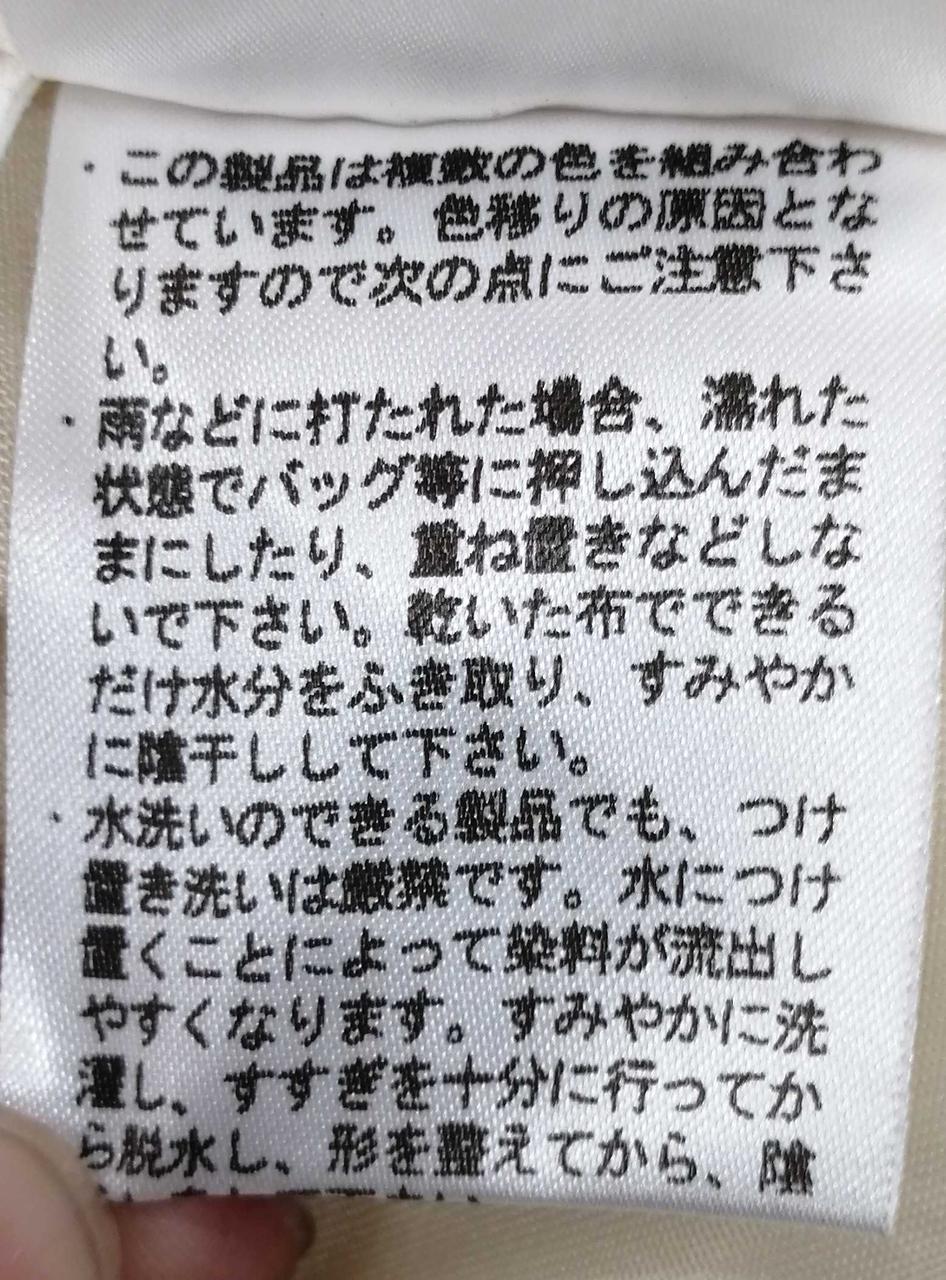 ・この製品は複数の色を組み合わ
せています。色移りの原因とな
りますので次の点にご注意下さ
い。
・雨などに打たれた場合、濡れた
状態でバッグ等に押し込んだま
まにしたり、重ね置きなどしな
いで下さい。乾いた布でできる
だけ水分をふき取り、すみやか
に陰干しして下さい。
・水洗いのできる製品でも、つけ
置き洗いは厳禁です。水につけ
置くことによって染料が流出し
やすくなります。すみやかに洗
濯し、すすぎを十分に行ってか
ら脱水し、形を整えてから、陰